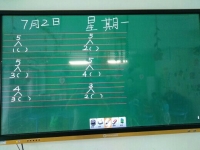 7月2日 星期一
5 5
1( ) 2( )
5 5
3( ) 4( )
4 3
3( ) 2( )